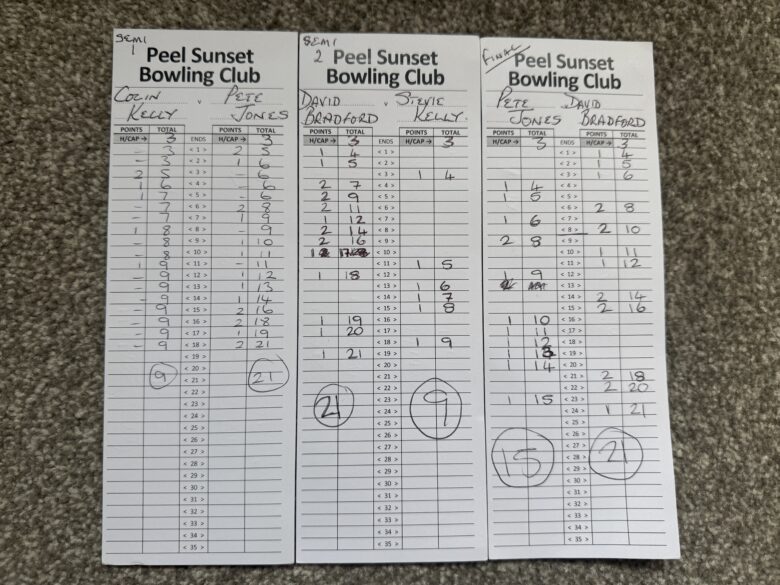 SEMI
1
Peel Sunset
Bowling Club
COLIN KELLY v PETE JONES
POINTS TOTAL POINTS TOTAL
H/CAP → 3 ENDS H/CAP → 3
- 3 < 1 > 2 5
- 3 < 2 > 1 6
2 5 < 3 > - 6
1 6 < 4 > - 6
1 7 < 5 > - 6
- 7 < 6 > 2 8
- 7 < 7 > 1 9
1 8 < 8 > - 9
- 8 < 9 > 1 10
- 8 < 10 > 1 11
1 9 < 11 > - 11
- 9 < 12 > 1 12
- 9 < 13 > 1 13
- 9 < 14 > 1 14
- 9 < 15 > 2 16
- 9 < 16 > 2 18
- 9 < 17 > 1 19
- 9 < 18 > 2 21
< 19 >
< 20 >
9 < 21 > 21
< 22 >
< 23 >
< 24 >
< 25 >
< 26 >
< 27 >
< 28 >
< 29 >
< 30 >
< 31 >
< 32 >
< 33 >
< 34 >
< 35 >
SEMI
2
Peel Sunset
Bowling Club
DAVID BRADFORD v STEVIE KELLY.
POINTS TOTAL POINTS TOTAL
H/CAP → 3 ENDS H/CAP → 3
1 4 < 1 >
1 5 < 2 >
< 3 > 1 4
2 7 < 4 >
2 9 < 5 >
2 11 < 6 >
1 12 < 7 >
2 14 < 8 >
2 16 < 9 >
1 17 < 10 >
< 11 > 1 5
1 18 < 12 >
< 13 > 1 6
< 14 > 1 7
< 15 > 1 8
1 19 < 16 >
1 20 < 17 >
< 18 > 1 9
1 21 < 19 >
< 20 >
< 21 >
< 22 >
21 < 23 > 9
< 24 >
< 25 >
< 26 >
< 27 >
< 28 >
< 29 >
< 30 >
< 31 >
< 32 >
< 33 >
< 34 >
< 35 >
FINAL
Peel Sunset
Bowling Club
PETE JONES v DAVID BRADFORD
POINTS TOTAL POINTS TOTAL
H/CAP → 3 ENDS H/CAP → 3
< 1 > 1 4
< 2 > 1 5
< 3 > 1 6
1 4 < 4 >
1 5 < 5 >
< 6 > 2 8
1 6 < 7 >
< 8 > 2 10
2 8 < 9 >
< 10 > 1 11
< 11 > 1 12
1 9 < 12 >
< 13 >
< 14 > 2 14
< 15 > 2 16
1 10 < 16 >
1 11 < 17 >
1 12 < 18 >
1 13 < 19 >
1 14 < 20 >
< 21 > 2 18
< 22 > 2 20
1 15 < 23 >
< 24 > 1 21
< 25 >
< 26 >
< 27 >
15 < 28 > 21
< 29 >
< 30 >
< 31 >
< 32 >
< 33 >
< 34 >
< 35 >